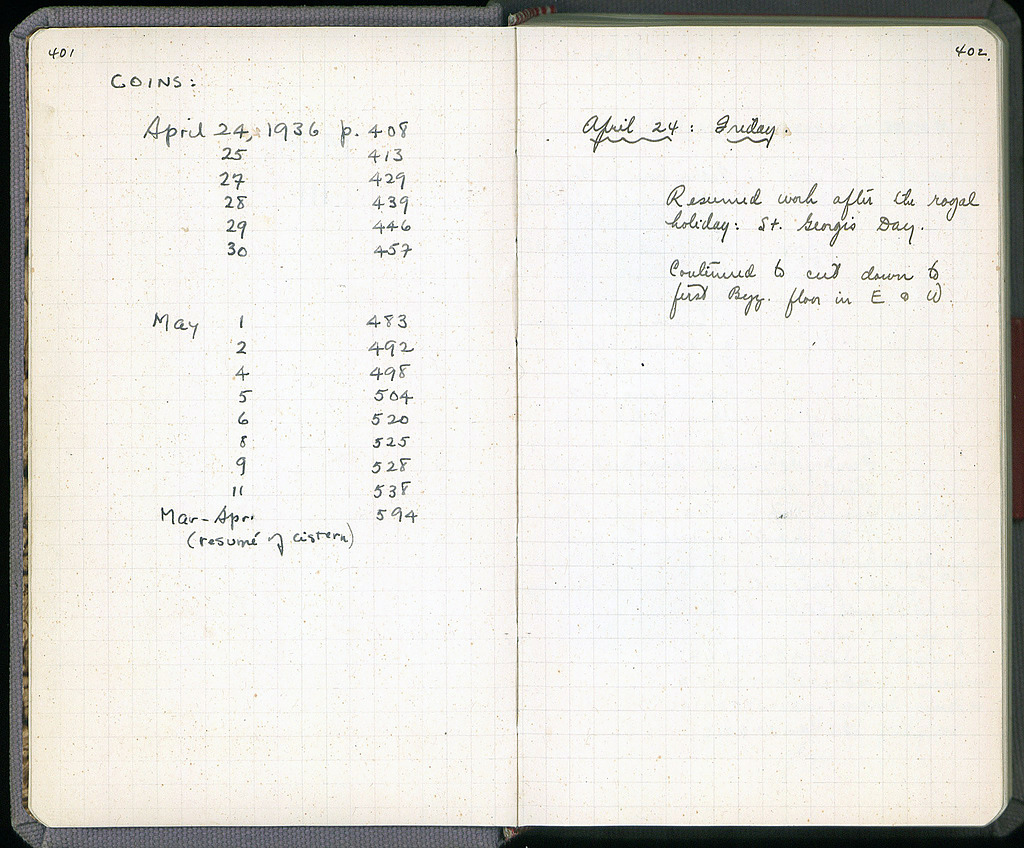 401
COINS:
April 24, 1936 p. 408
25 413
27 429
28 439
29 446
30 457
May 1 483
2 492
4 498
5 504
6 520
8 525
9 528
11 538
Mar-Apr. 594
(resumé of cistern)
402.
April 24: Friday.
Resumed work after the royal
holiday: St. George's Day.
Continued to cut down to
first Byz. floor in E & W